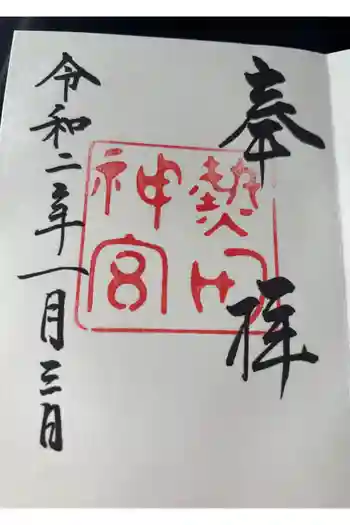 奉拝
熱田
神宮
令和二年一月三日